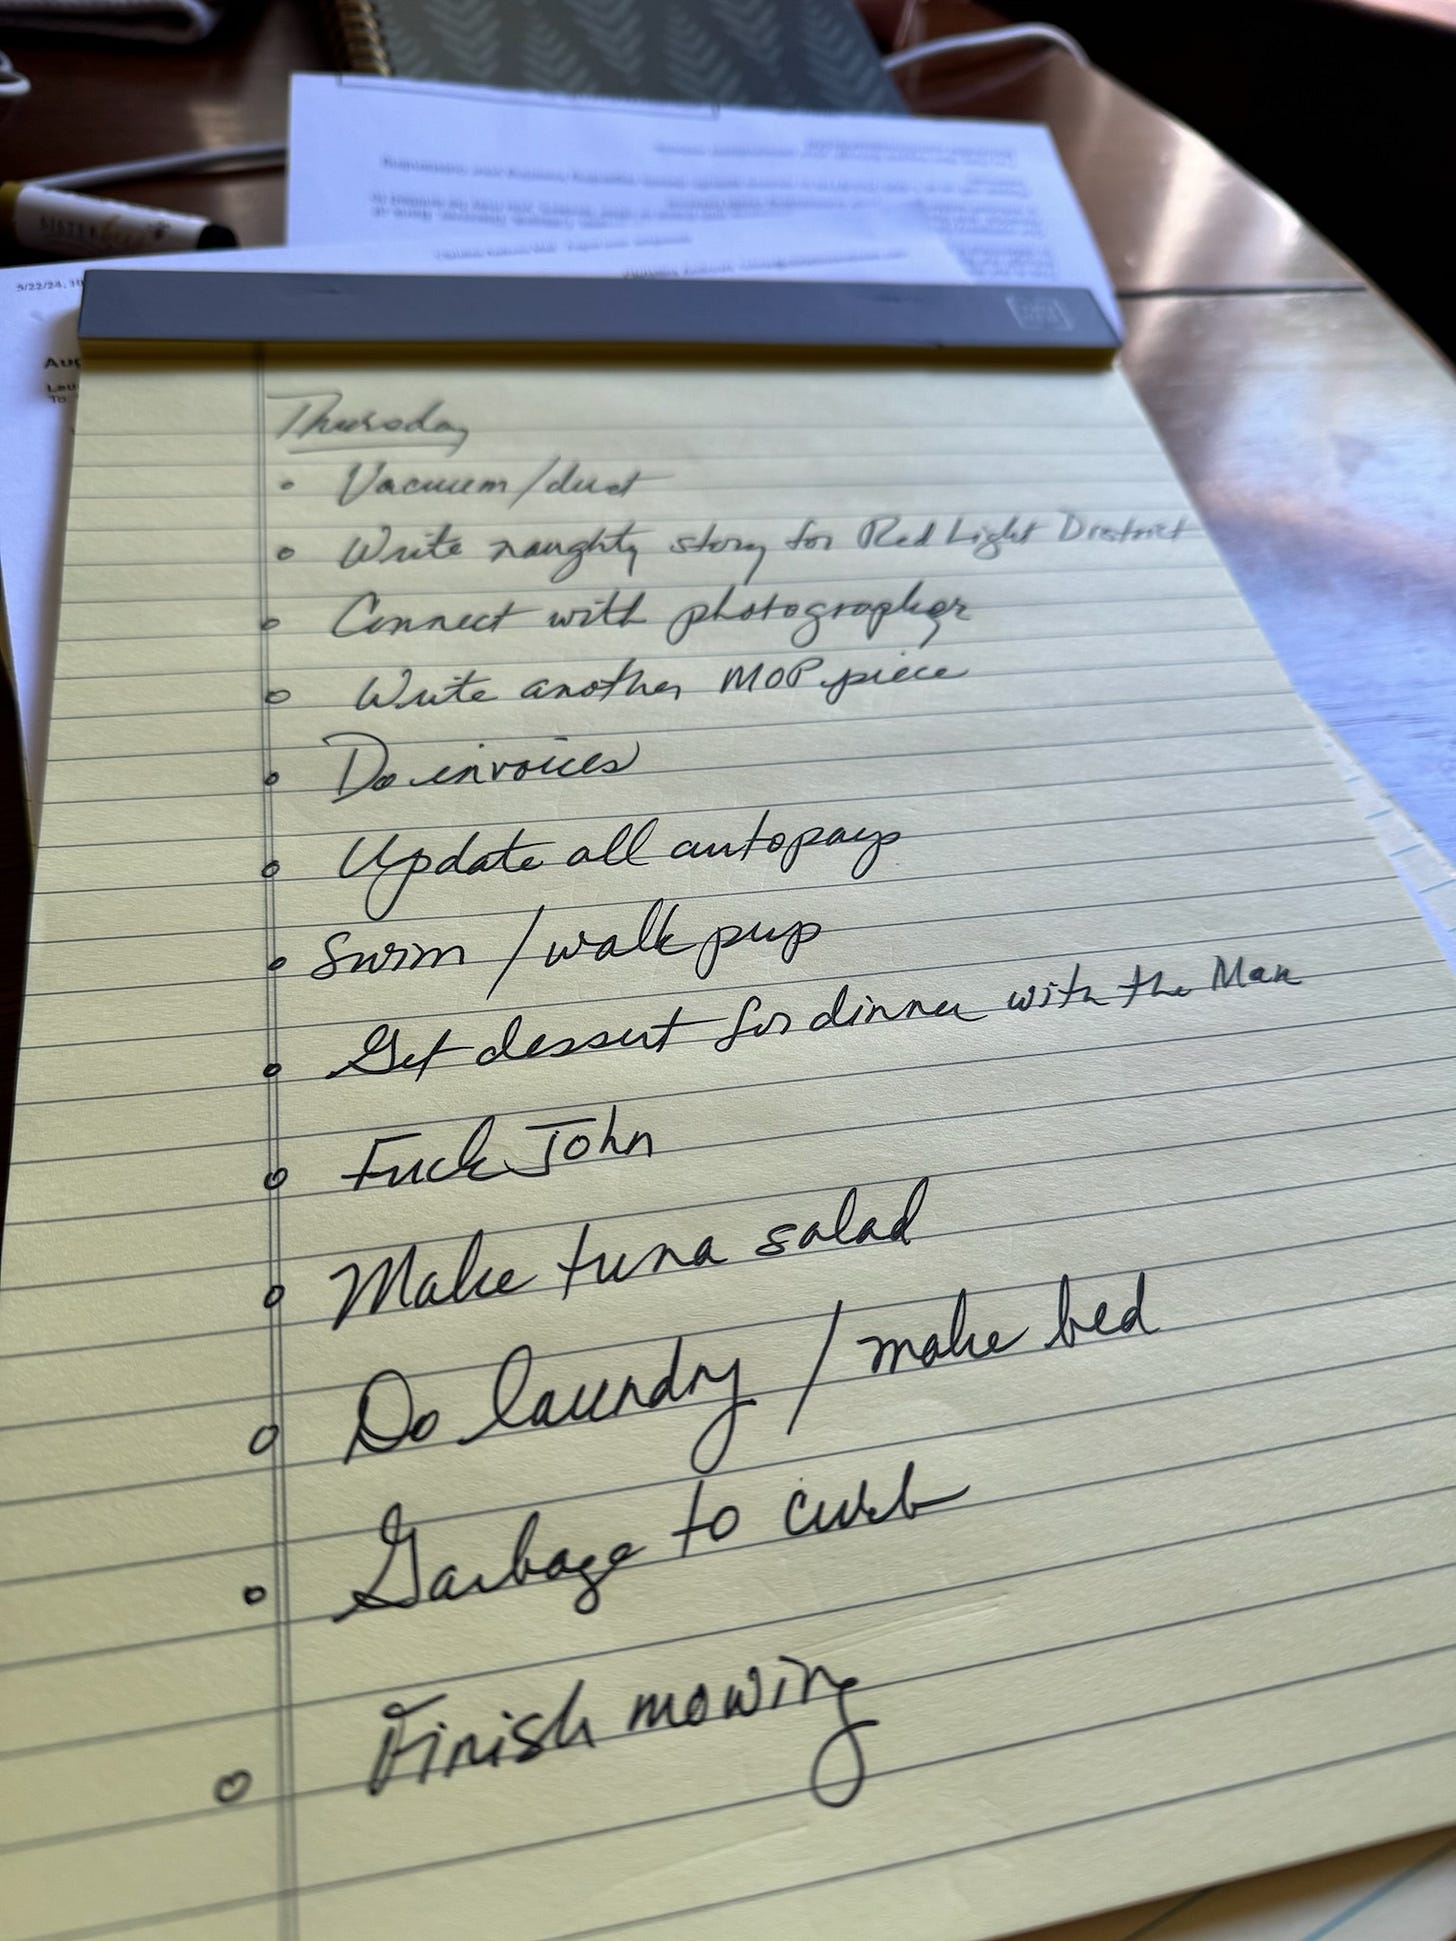 5/22/24, 10
Aug
Lau
To:
Thursday
• Vacuum/dust
• Write naughty story for Red Light District
• Connect with photographer
• Write another MOP piece
• Do invoices
• Update all autopays
• Swim / walk pup
• Get dessert for dinner with the Man
• Fuck John
• Make tuna salad
• Do laundry / make bed
• Garbage to curb
• Finish mowing